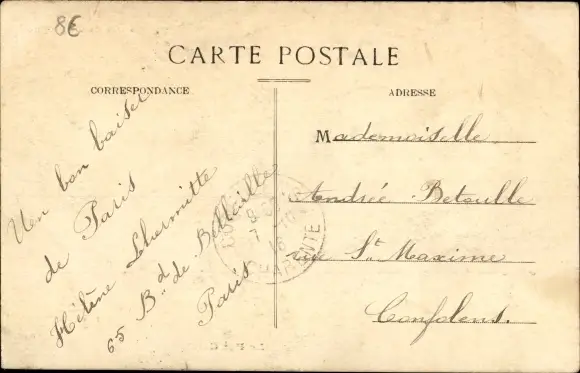 8€
CARTE POSTALE
CORRESPONDANCE
Un bon baiser
de Paris
Hélène Lhermitte
65 Bd de Belleville
Paris
ADRESSE
Mademoiselle
Andrée Betoulle
rue St Maxime
Confolens.
CHARENTE